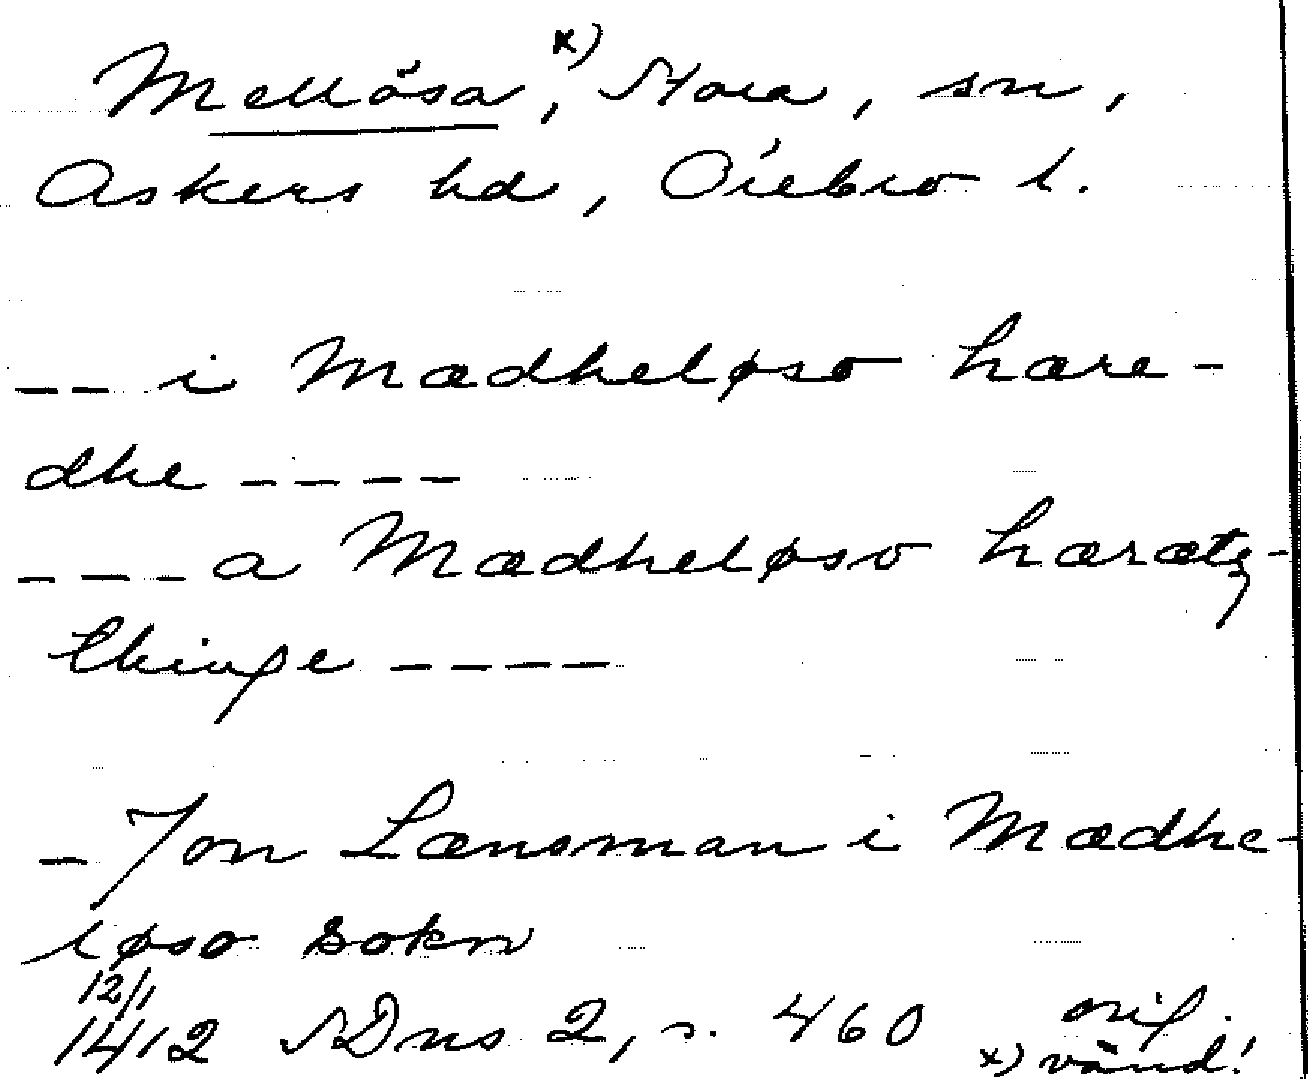 Mellösa,x) Stora, sn,
Askers hd, Örebro l.
-- i Mædheløso hære-
dhe ----
--- a Mædheløso hærætz-
thinge ----
- Jon Lænsman i Mædhe-
løso sokn
12/1
1412 SDns 2, s. 460 orig.
x) vänd!